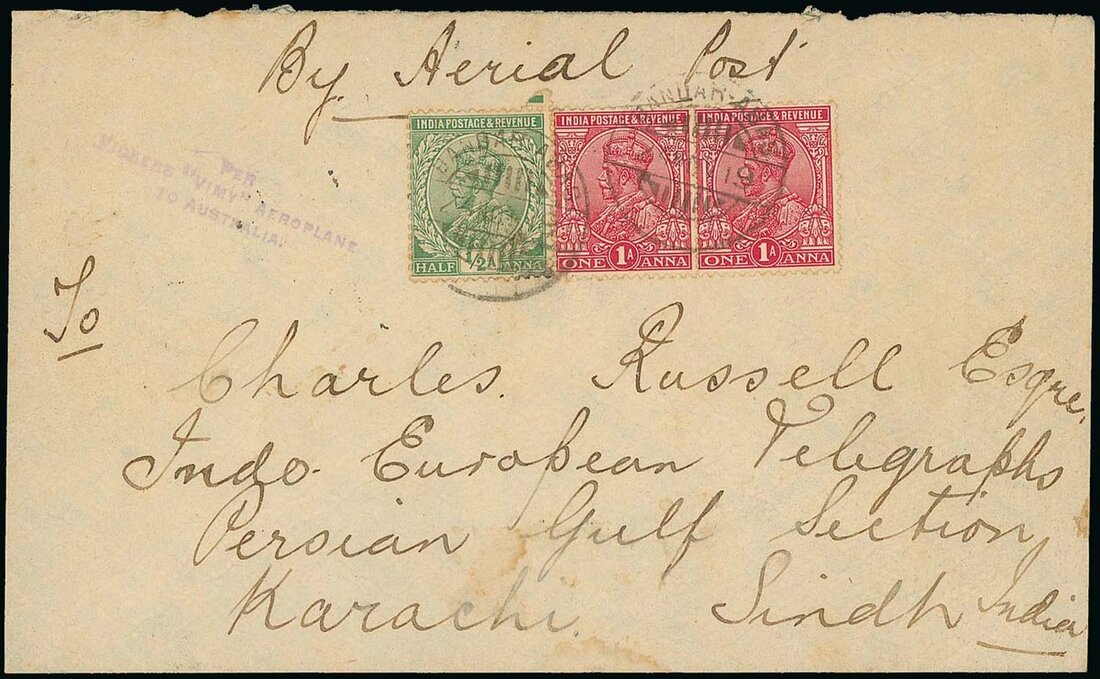 By Aerial Post
PER
VICKERS "VIMY" AEROPLANE
TO AUSTRALIA.
INDIA POSTAGE & REVENUE
HALF 1/2A ANNA
INDIA POSTAGE & REVENUE
ONE 1A ANNA
INDIA POSTAGE & REVENUE
ONE 1A ANNA
19
To
Charles. Russell Esqre,
Indo. European Telegraphs
Persian Gulf Section,
Karachi. Sindh India